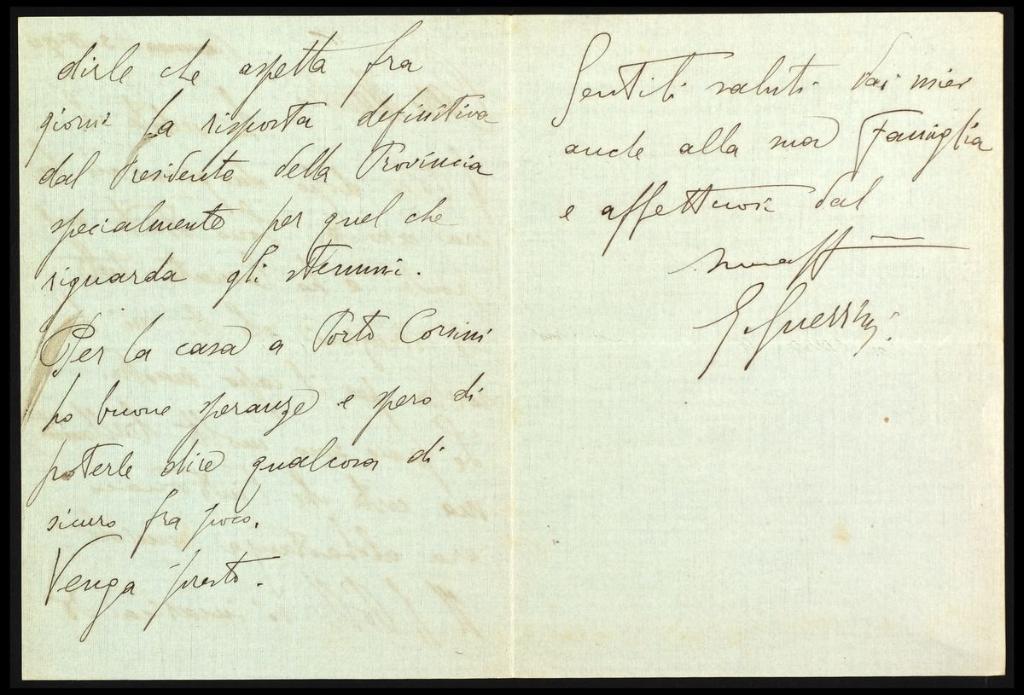 dirle che aspetta fra
giorni la risposta definitiva
dal Presidente della Provincia
specialmente per quel che
riguarda gli stemmi.
Per la casa a Porto Corsini
ho buone speranze e spero di
poterle dire qualcosa di
sicuro fra poco.
Venga presto.
Gentili saluti dai miei
anche alla sua Famiglia
e affettuosi dal
suo aff
G Guerrini